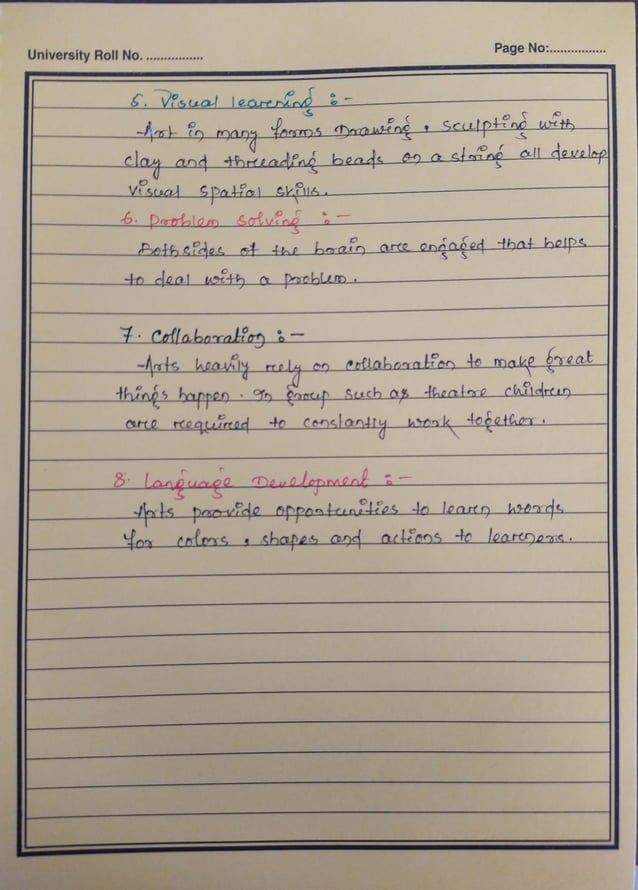 University Roll No. ................ Page No:................
5. Visual learning :-
Art in many forms Drawing, sculpting with
clay and threading beads on a string all develop
visual spatial skills.
6. Problem solving :-
Both sides of the brain are engaged that helps
to deal with a problem.
7. Collaboration :-
Arts heavily rely on collaboration to make great
things happen. In group such as theatre children
are required to constantly work together.
8. Language Development :-
Arts provide opportunities to learn words
for colors, shapes and actions to learners.